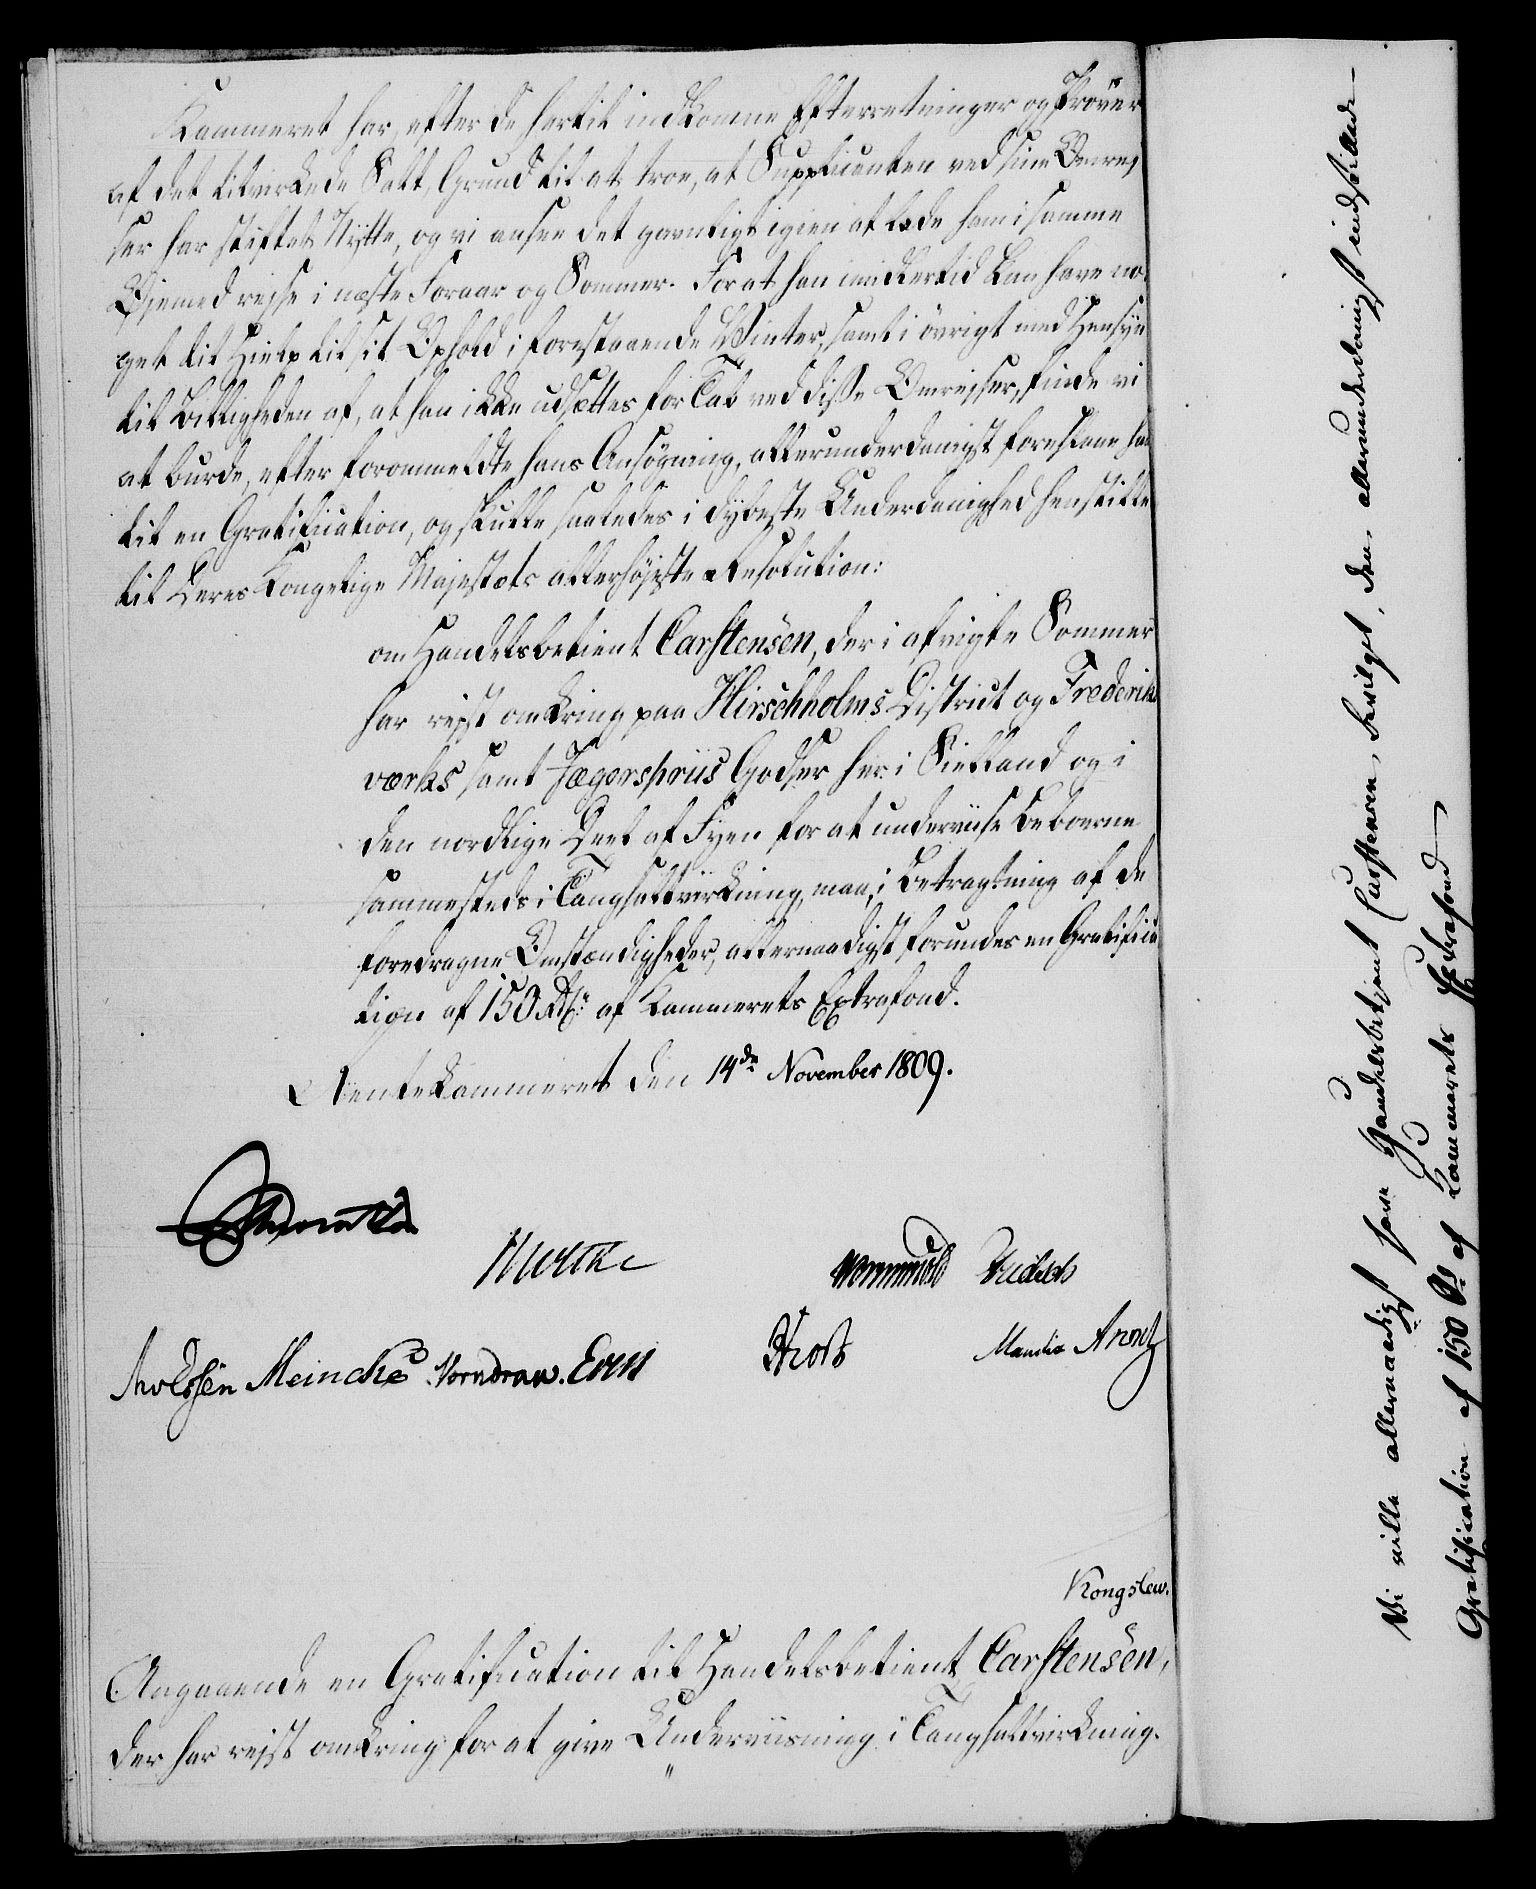 Kammeret har, efter de hertil indkomne Efterretninger og Prøver
af det tilvirkede Salt, Grund til at troe, at Supplicanten ved sine Omrej
ser har stiftet Nytte, og vi ansee det gavnligt igien at lade ham i samme
Øjemed rejse i næste Foraar og Sommer. For at han imidlertid kan have no
get til Hielp til sit Ophold i forestaaende Vinter, samt i övrigt med Hensyn
til Billigheden af, at han ikke udsættes for Tab ved disse Omrejser, finde vi
at burde, efter forommeldte hans Ansøgning, allerunderdanigst foreslaae ham
til en Gratification, og skulle saaledes i dybeste Underdanighed henstille
til Deres Kongelige Majestæts allerhöjeste Resolution:
om Handelsbetient Carstensen, der i afvigte Sommer
har rejst omkring paa Hirschholms District og Frederiks
værks samt Jægersprüs Godser her i Sielland og i
den nordlige Deel af Fyen for at underviise Beboerne
sammesteds i Tangsaltvirkning, maa, i Betragtning af de
foredragne Omstændigheder, allernaadigst forundes en Gratifica
tion af 150 Rd. af Kammerets Extrafond.
Rentekammeret den 14de November 1809.
Wormskiold
Meincke Vorndran.
Kongslew.
Angaaende en Gratification til Handelsbetient Carstensen,
der har rejst omkring for at give Underviisning i Tangsaltvirkning.
Vi ville allernaadigst have Handelsbetjent Carstensen bevilget, den allerunderdanigst indstillede
Gratification af 150 Rd af Kammerets Extrafond